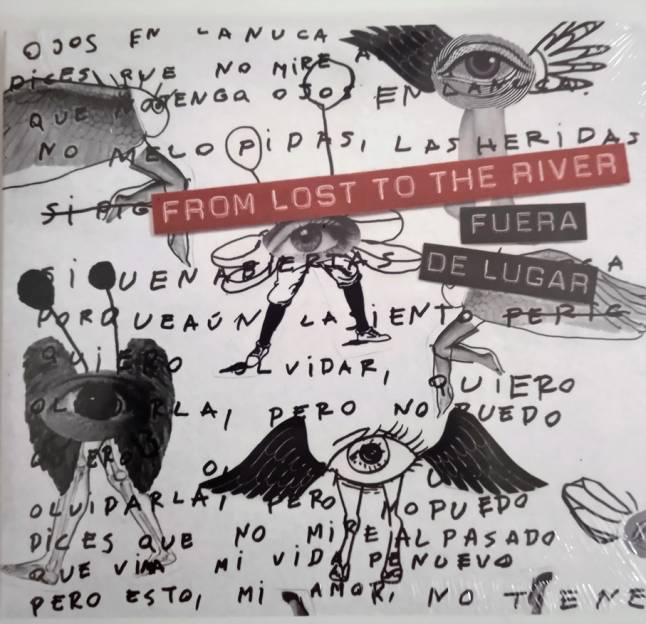 OJOS EN LA NUCA
DICES QUE NO MIRE A
QUE NO TENGA OJOS EN LA NUCA
NO ME LO PIDAS, LAS HERIDAS
FROM LOST TO THE RIVER
SI
FUERA
DE LUGAR
SIGUEN ABIERTAS
PORQUE AÚN LA SIENTO
QUIERO OLVIDAR, QUIERO
OLVIDARLA, PERO NO PUEDO
QUIERO
OLVIDARLA, PERO NO PUEDO
DICES QUE NO MIRE AL PASADO
QUE VIVA MI VIDA DE NUEVO
PERO ESTO, MI AMOR, NO TIENE